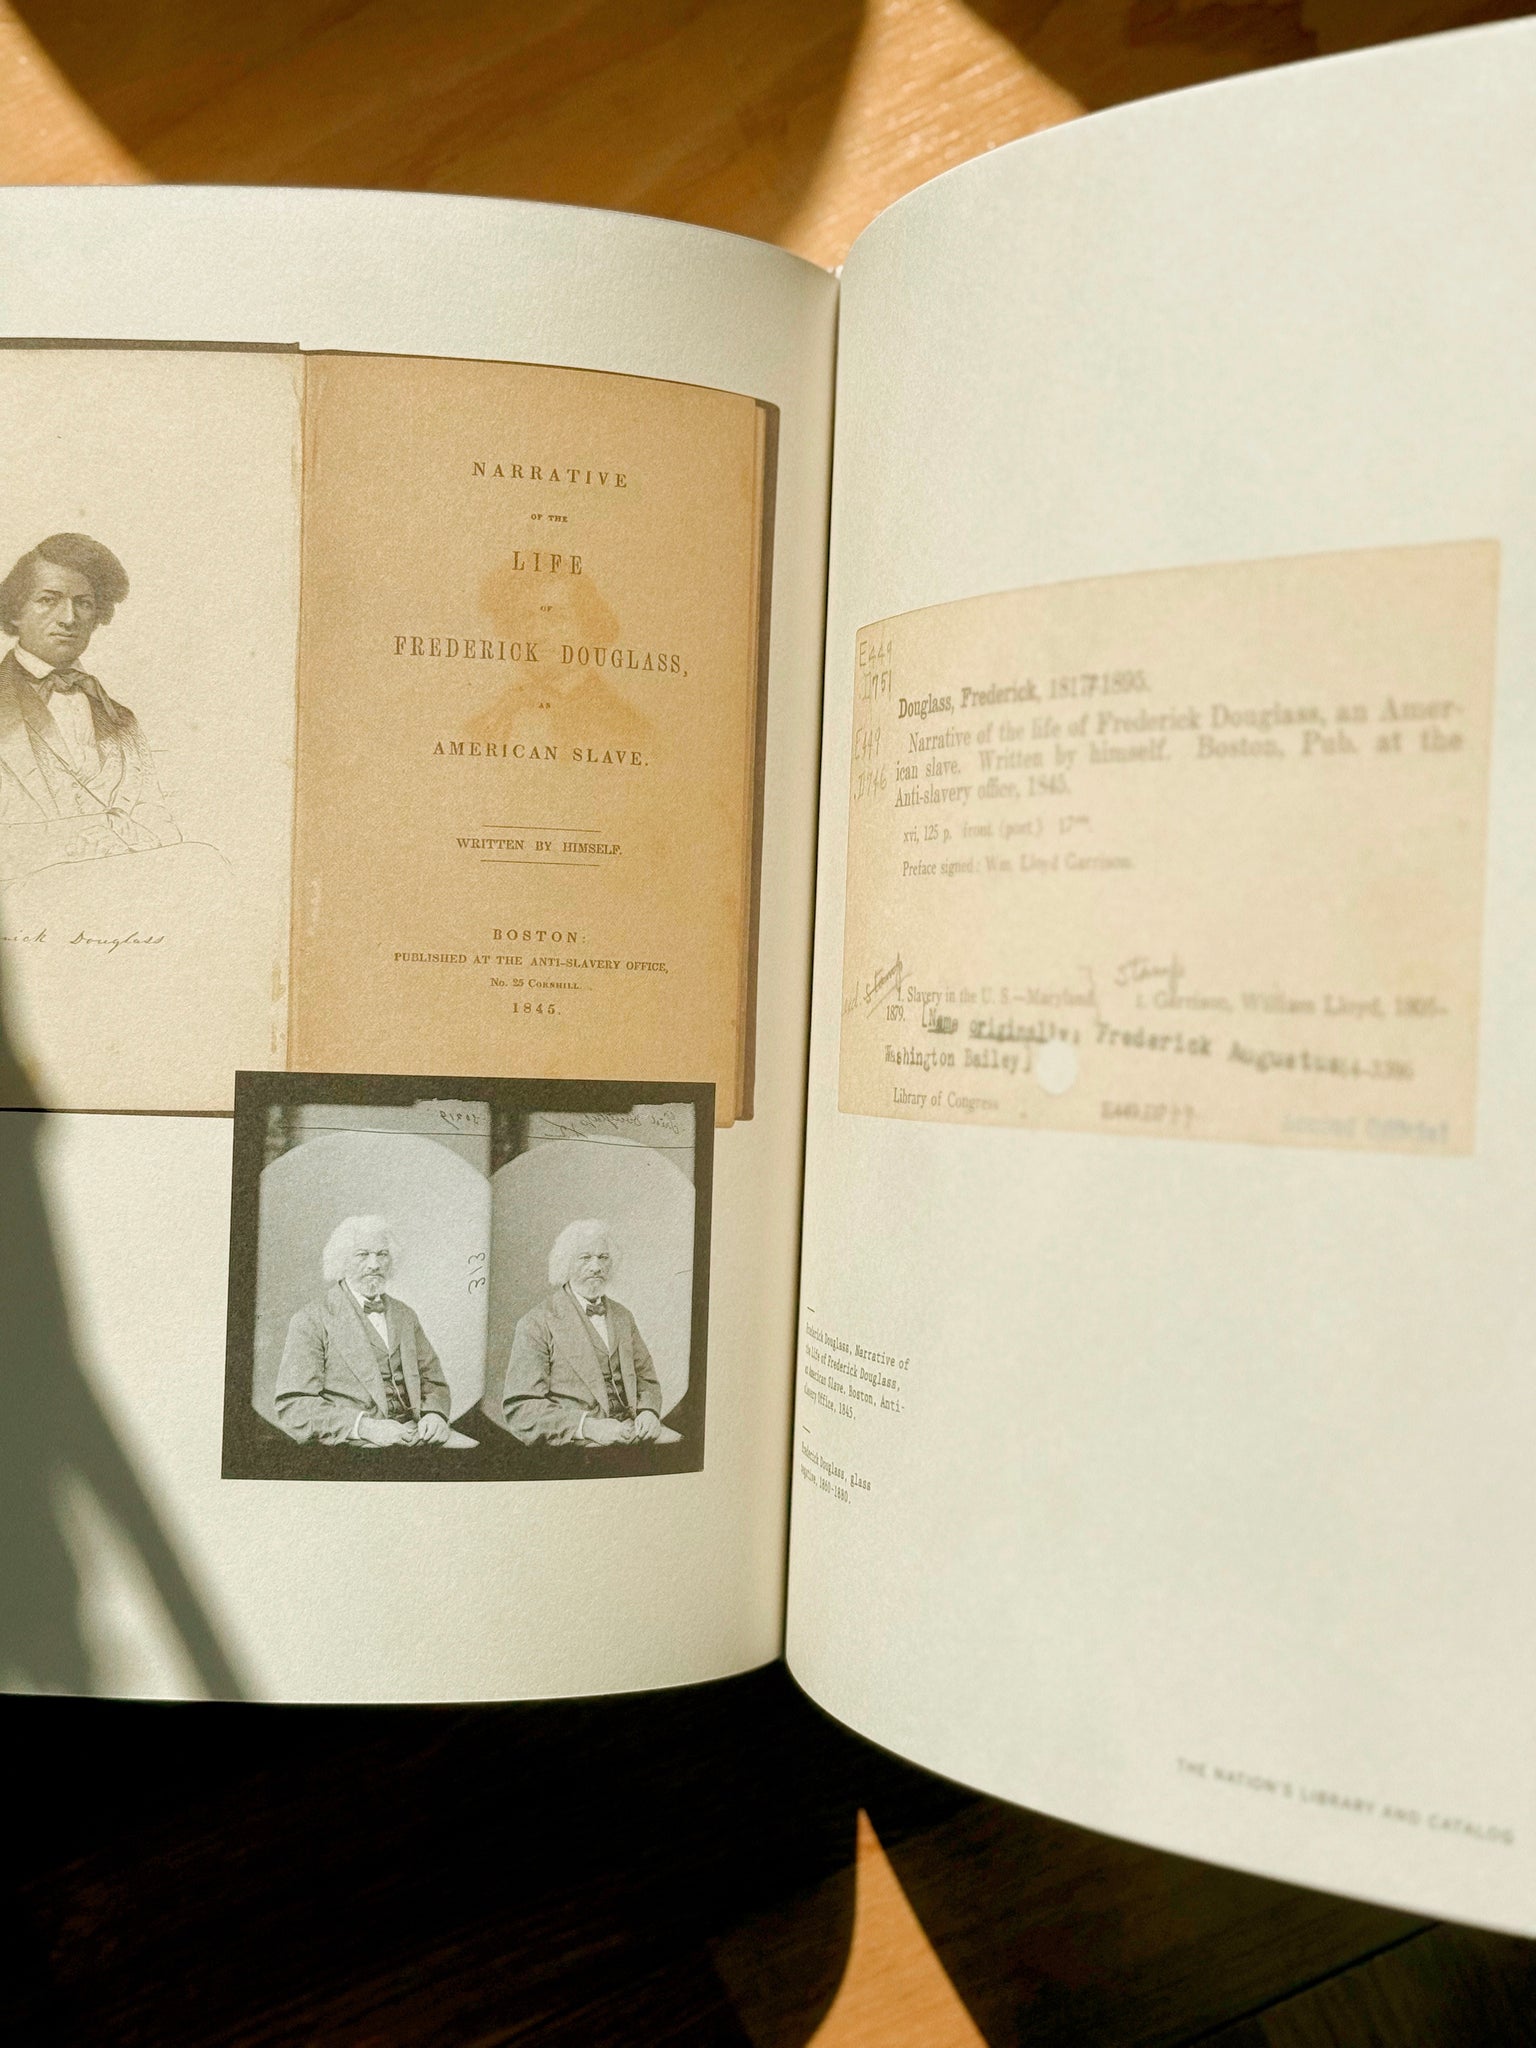 NARRATIVE
OF THE
LIFE
OF
FREDERICK DOUGLASS,
AN
AMERICAN SLAVE.
WRITTEN BY HIMSELF.
BOSTON:
PUBLISHED AT THE ANTI-SLAVERY OFFICE,
No. 25 CORNHILL.
1845.
Douglass
313
E449
.D751
E449
.D746
Douglass, Frederick, 1817?-1895.
Narrative of the life of Frederick Douglass, an Amer-
ican slave. Written by himself. Boston, Pub. at the
Anti-slavery office, 1845.
xvi, 125 p. front. (port.) 17cm.
Preface signed: Wm. Lloyd Garrison.
1. Slavery in the U. S.—Maryland. I. Garrison, William Lloyd, 1805–
1879. [Name originally: Frederick Augustus
Washington Bailey]
Library of Congress
Frederick Douglass, Narrative of
the Life of Frederick Douglass,
an American Slave, Boston, Anti-
Slavery Office, 1845.
Frederick Douglass, glass
negative, 1860-1880.
THE NATION'S LIBRARY AND CATALOG